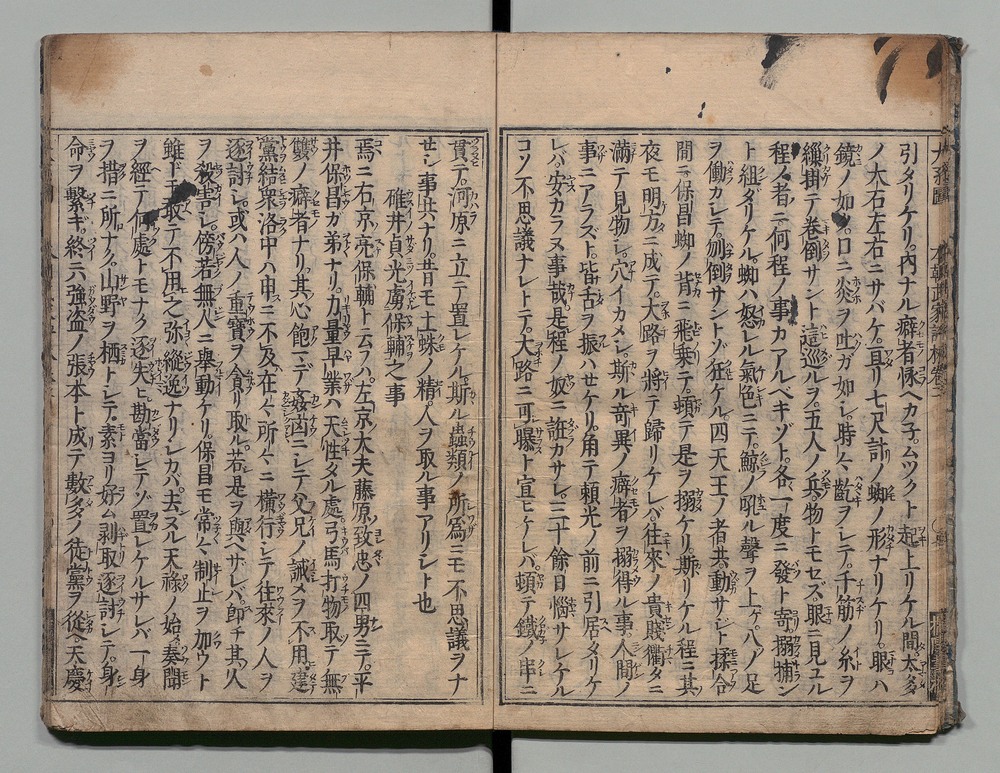 引タリケリ。内ナル癖者豚ヘカ子。ムツクト起上リケル間。太多
ノ大石左右ニサバケ。亘リ七尺計ノ蜘ノ形ナリケリ。眼ハ
鏡ノ如ク。口ニ炎ヲ吐ガ如シ。時々齔ヲシテ。千筋ノ糸ヲ
繰掛テ巻倒サント。這巡ルヲ。五人ノ兵。物トモセズ。眼ニ見エル
程ノ者ニ何程ノ事カアルベキゾト。各一度ニ發ト寄。搦捕ン
ト組ダリケル。蜘ハ怒レル氣色ニテ。鯨ノ吼ル聲ヲ上ゲ。八ノ足
ヲ働カシテ。刎倒サントゾ狂ケル。四天王ノ者共。動サジト揉合
間ニ。保昌蜘ノ背ニ飛乗テ。頓テ是ヲ搦ケリ。斯リケル程ニ。其
夜モ明方ニ成テ。大路ヲ將テ歸リケレバ。往來ノ貴賤衢ニ
満テ見物シ。穴イカメシ。斯ル奇異ノ癖者ヲ搦得ル事。人間ノ
事ニアラズト。皆舌ヲ振ハセケリ。角テ頼光ノ前ニ引居タリケ
レバ。安カラヌ事哉。是程ノ奴ニ誑カサレ。三十餘日惱サレケル
コソ不思議ナレトテ。大路ニ可曝ト宣ヒケレバ。頓テ鐵ノ串ニ
貫テ。河原ニ立テ置レケル。斯ル蟲類ノ所爲ニモ不思議ヲナ
セシ事共ナリ。昔モ土蛛ノ精。人ヲ取ル事アリシト也
碓井貞光虜保輔之事
焉ニ右京亮保輔ト云フハ。左京大夫藤原致忠ノ四男ニテ。平
井保昌ガ弟ナリ。力量早業ハ天性タル處。弓馬打物取テ無
雙ノ癖者ナリ。其心飽マデ姦凶ニシテ。父兄ノ誡メヲ不用。建
黨結衆。洛中ハ申ニ不及。在々所々ニ橫行シテ。往來ノ人ヲ
逐討シ。或ハ人ノ重寶ヲ貪リ取ル。若是ヲ與ヘサレバ。即チ其人
ヲ殺害シ。傍若無人ニ舉動ケリ。保昌モ常々制止ヲ加ウト
雖ドモ。敢テ不用之。弥縱逸ナリシカバ。去ヌル天禄ノ始。奏聞
ヲ經テ。何處トモナク逐失ヒ。勘當シテゾ置レケル。サレバ一身
ヲ措ニ所ナク。山野ヲ栖トシテ。素ヨリ好ム剥取逐討シテ。身
命ヲ繫ギ。終ニハ強盗ノ張本ト成テ。數多ノ徒黨ヲ從ヘ。天慶